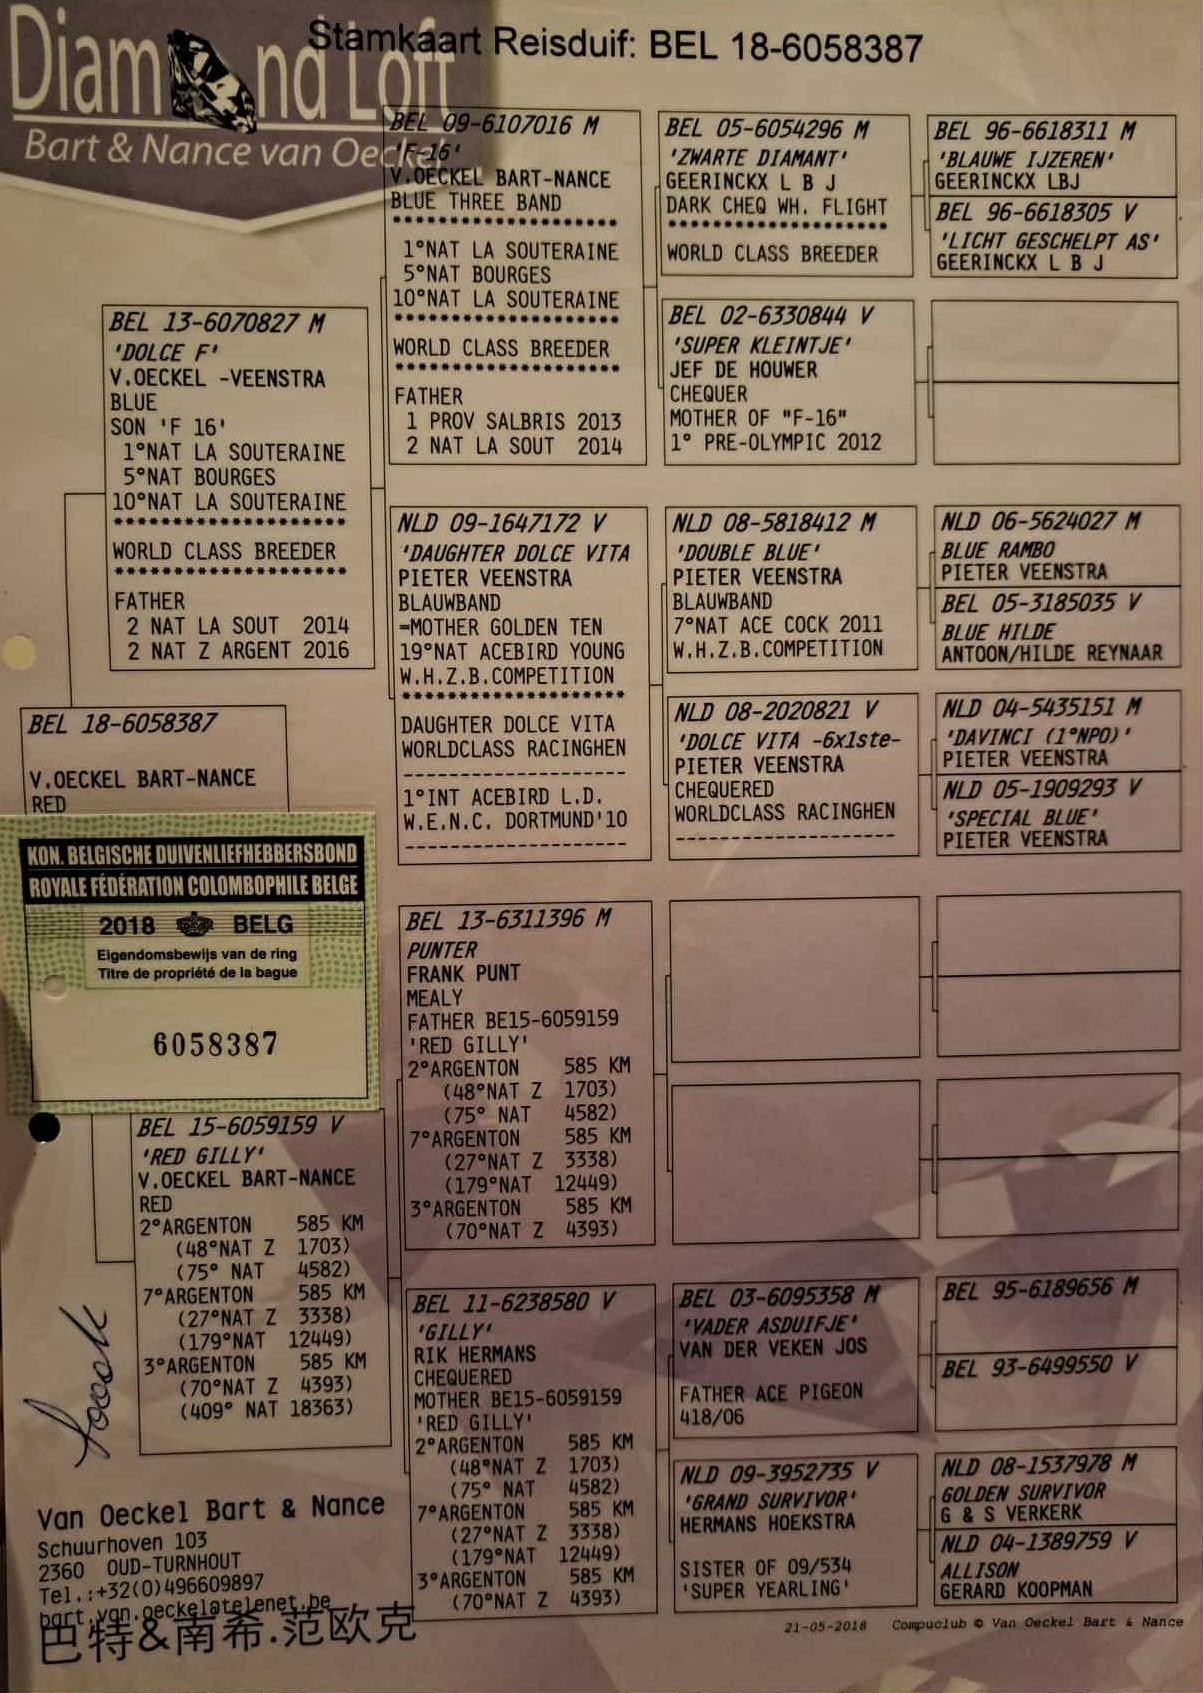 Stamkaart Reisduif: BEL 18-6058387
Diamond Loft
Bart & Nance van Oeckel
BEL 18-6058387
V.OECKEL BART-NANCE
RED
KON. BELGISCHE DUIVENLIEFHEBBERSBOND
ROYALE FÉDÉRATION COLOMBOPHILE BELGE
2018 BELG
Eigendomsbewijs van de ring
Titre de propriété de la bague
6058387
BEL 13-6070827 M
'DOLCE F'
V.OECKEL -VEENSTRA
BLUE
SON 'F 16'
1°NAT LA SOUTERAINE
5°NAT BOURGES
10°NAT LA SOUTERAINE
********************
WORLD CLASS BREEDER
********************
FATHER
2 NAT LA SOUT 2014
2 NAT Z ARGENT 2016
BEL 15-6059159 V
'RED GILLY'
V.OECKEL BART-NANCE
RED
2°ARGENTON 585 KM
(48°NAT Z 1703)
(75° NAT 4582)
7°ARGENTON 585 KM
(27°NAT Z 3338)
(179°NAT 12449)
3°ARGENTON 585 KM
(70°NAT Z 4393)
(409° NAT 18363)
BEL 09-6107016 M
'F-16'
V.OECKEL BART-NANCE
BLUE THREE BAND
********************
1°NAT LA SOUTERAINE
5°NAT BOURGES
10°NAT LA SOUTERAINE
********************
WORLD CLASS BREEDER
********************
FATHER
1 PROV SALBRIS 2013
2 NAT LA SOUT 2014
NLD 09-1647172 V
'DAUGHTER DOLCE VITA
PIETER VEENSTRA
BLAUWBAND
=MOTHER GOLDEN TEN
19°NAT ACEBIRD YOUNG
W.H.Z.B.COMPETITION
********************
DAUGHTER DOLCE VITA
WORLDCLASS RACINGHEN
--------------------
1°INT ACEBIRD L.D.
W.E.N.C. DORTMUND'10
--------------------
BEL 13-6311396 M
PUNTER
FRANK PUNT
MEALY
FATHER BE15-6059159
'RED GILLY'
2°ARGENTON 585 KM
(48°NAT Z 1703)
(75° NAT 4582)
7°ARGENTON 585 KM
(27°NAT Z 3338)
(179°NAT 12449)
3°ARGENTON 585 KM
(70°NAT Z 4393)
BEL 11-6238580 V
'GILLY'
RIK HERMANS
CHEQUERED
MOTHER BE15-6059159
'RED GILLY'
2°ARGENTON 585 KM
(48°NAT Z 1703)
(75° NAT 4582)
7°ARGENTON 585 KM
(27°NAT Z 3338)
(179°NAT 12449)
3°ARGENTON 585 KM
(70°NAT Z 4393)
BEL 05-6054296 M
'ZWARTE DIAMANT'
GEERINCKX L B J
DARK CHEQ WH. FLIGHT
********************
WORLD CLASS BREEDER
BEL 02-6330844 V
'SUPER KLEINTJE'
JEF DE HOUWER
CHEQUER
MOTHER OF "F-16"
1° PRE-OLYMPIC 2012
NLD 08-5818412 M
'DOUBLE BLUE'
PIETER VEENSTRA
BLAUWBAND
7°NAT ACE COCK 2011
W.H.Z.B.COMPETITION
NLD 08-2020821 V
'DOLCE VITA -6x1ste-
PIETER VEENSTRA
CHEQUERED
WORLDCLASS RACINGHEN
--------------------
BEL 03-6095358 M
'VADER ASDUIFJE'
VAN DER VEKEN JOS
FATHER ACE PIGEON
418/06
NLD 09-3952735 V
'GRAND SURVIVOR'
HERMANS HOEKSTRA
SISTER OF 09/534
'SUPER YEARLING'
BEL 96-6618311 M
'BLAUWE IJZEREN'
GEERINCKX LBJ
BEL 96-6618305 V
'LICHT GESCHELPT AS'
GEERINCKX L B J
NLD 06-5624027 M
BLUE RAMBO
PIETER VEENSTRA
BEL 05-3185035 V
BLUE HILDE
ANTOON/HILDE REYNAAR
NLD 04-5435151 M
'DAVINCI (1°NPO)'
PIETER VEENSTRA
NLD 05-1909293 V
'SPECIAL BLUE'
PIETER VEENSTRA
BEL 95-6189656 M
BEL 93-6499550 V
NLD 08-1537978 M
GOLDEN SURVIVOR
G & S VERKERK
NLD 04-1389759 V
ALLISON
GERARD KOOPMAN
Van Oeckel Bart & Nance
Schuurhoven 103
2360 OUD-TURNHOUT
Tel.:+32(0)496609897
bart.van.oeckel@telenet.be
巴特&南希.范欧克
21-05-2018 Compuclub © Van Oeckel Bart & Nance